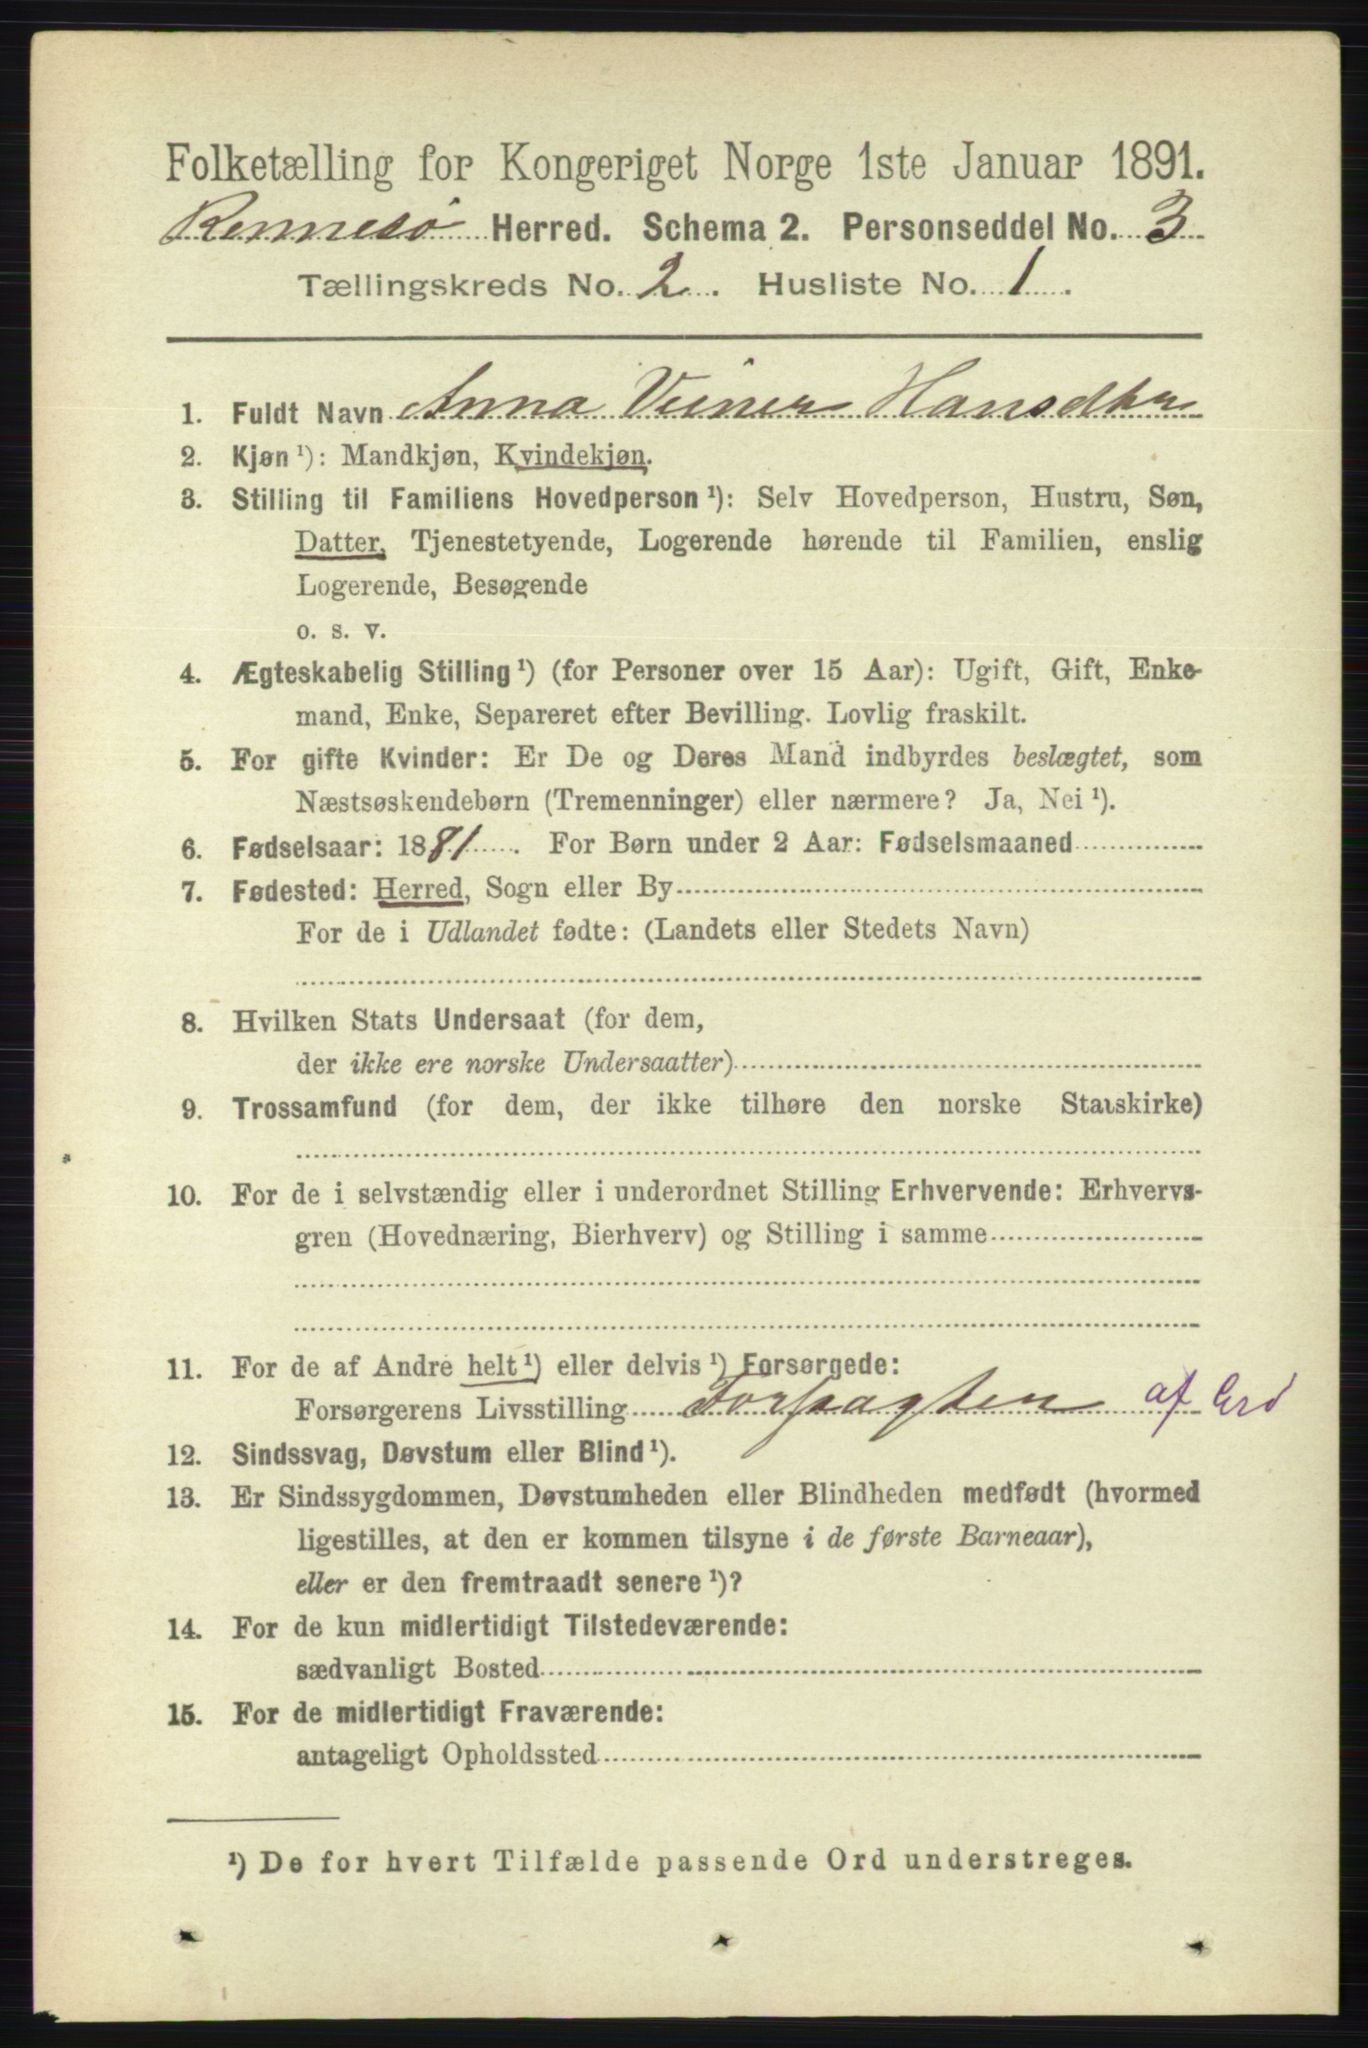 Folketælling for Kongeriget Norge 1ste Januar 1891.
Rennesø Herred. Schema 2. Personseddel No. 3
Tællingskreds No. 2. Husliste No. 1.
1. Fuldt Navn Anna Hansdtr
2. Kjøn ¹): Mandkjøn, Kvindekjøn.
3. Stilling til Familiens Hovedperson ¹): Selv Hovedperson, Hustru, Søn,
Datter, Tjenestetyende, Logerende hørende til Familien, enslig
Logerende, Besøgende
o. s. v.
4. Ægteskabelig Stilling ¹) (for Personer over 15 Aar): Ugift, Gift, Enke-
mand, Enke, Separeret efter Bevilling. Lovlig fraskilt.
5. For gifte Kvinder: Er De og Deres Mand indbyrdes beslægtet, som
Næstsøskendebørn (Tremenninger) eller nærmere? Ja, Nei ¹).
6. Fødselsaar: 1881. For Børn under 2 Aar: Fødselsmaaned
7. Fødested: Herred, Sogn eller By
For de i Udlandet fødte: (Landets eller Stedets Navn)
8. Hvilken Stats Undersaat (for dem,
der ikke ere norske Undersaatter)
9. Trossamfund (for dem, der ikke tilhøre den norske Statskirke)
10. For de i selvstændig eller i underordnet Stilling Erhvervende: Erhvervs-
gren (Hovednæring, Bierhverv) og Stilling i samme
11. For de af Andre helt ¹) eller delvis ¹) Forsørgede:
Forsørgerens Livsstilling af
12. Sindssvag, Døvstum eller Blind ¹).
13. Er Sindssygdommen, Døvstumheden eller Blindheden medfødt (hvormed
ligestilles, at den er kommen tilsyne i de første Barneaar),
eller er den fremtraadt senere ¹)?
14. For de kun midlertidigt Tilstedeværende:
sædvanligt Bosted
15. For de midlertidigt Fraværende:
antageligt Opholdssted
¹) De for hvert Tilfælde passende Ord understreges.